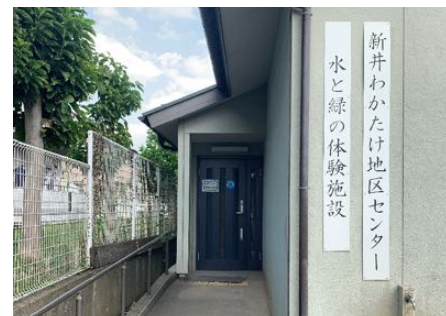 新井わかたけ地区センター
水と緑の体験施設